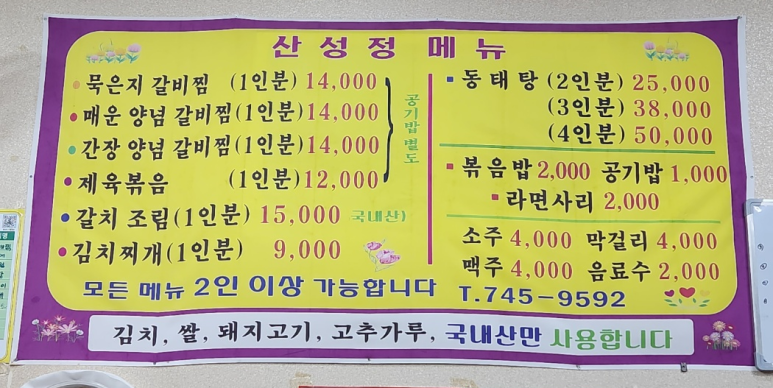 산성정 메뉴
묵은지 갈비찜 (1인분) 14,000
매운 양념 갈비찜 (1인분) 14,000
간장 양념 갈비찜 (1인분) 14,000
제육볶음 (1인분) 12,000
공기밥 별도
갈치 조림 (1인분) 15,000 국내산)
김치찌개 (1인분) 9,000
동태탕 (2인분) 25,000
(3인분) 38,000
(4인분) 50,000
볶음밥 2,000 공기밥 1,000
라면사리 2,000
소주 4,000 막걸리 4,000
맥주 4,000 음료수 2,000
모든 메뉴 2인 이상 가능합니다 T.745-9592
김치, 쌀, 돼지고기, 고추가루, 국내산만 사용합니다